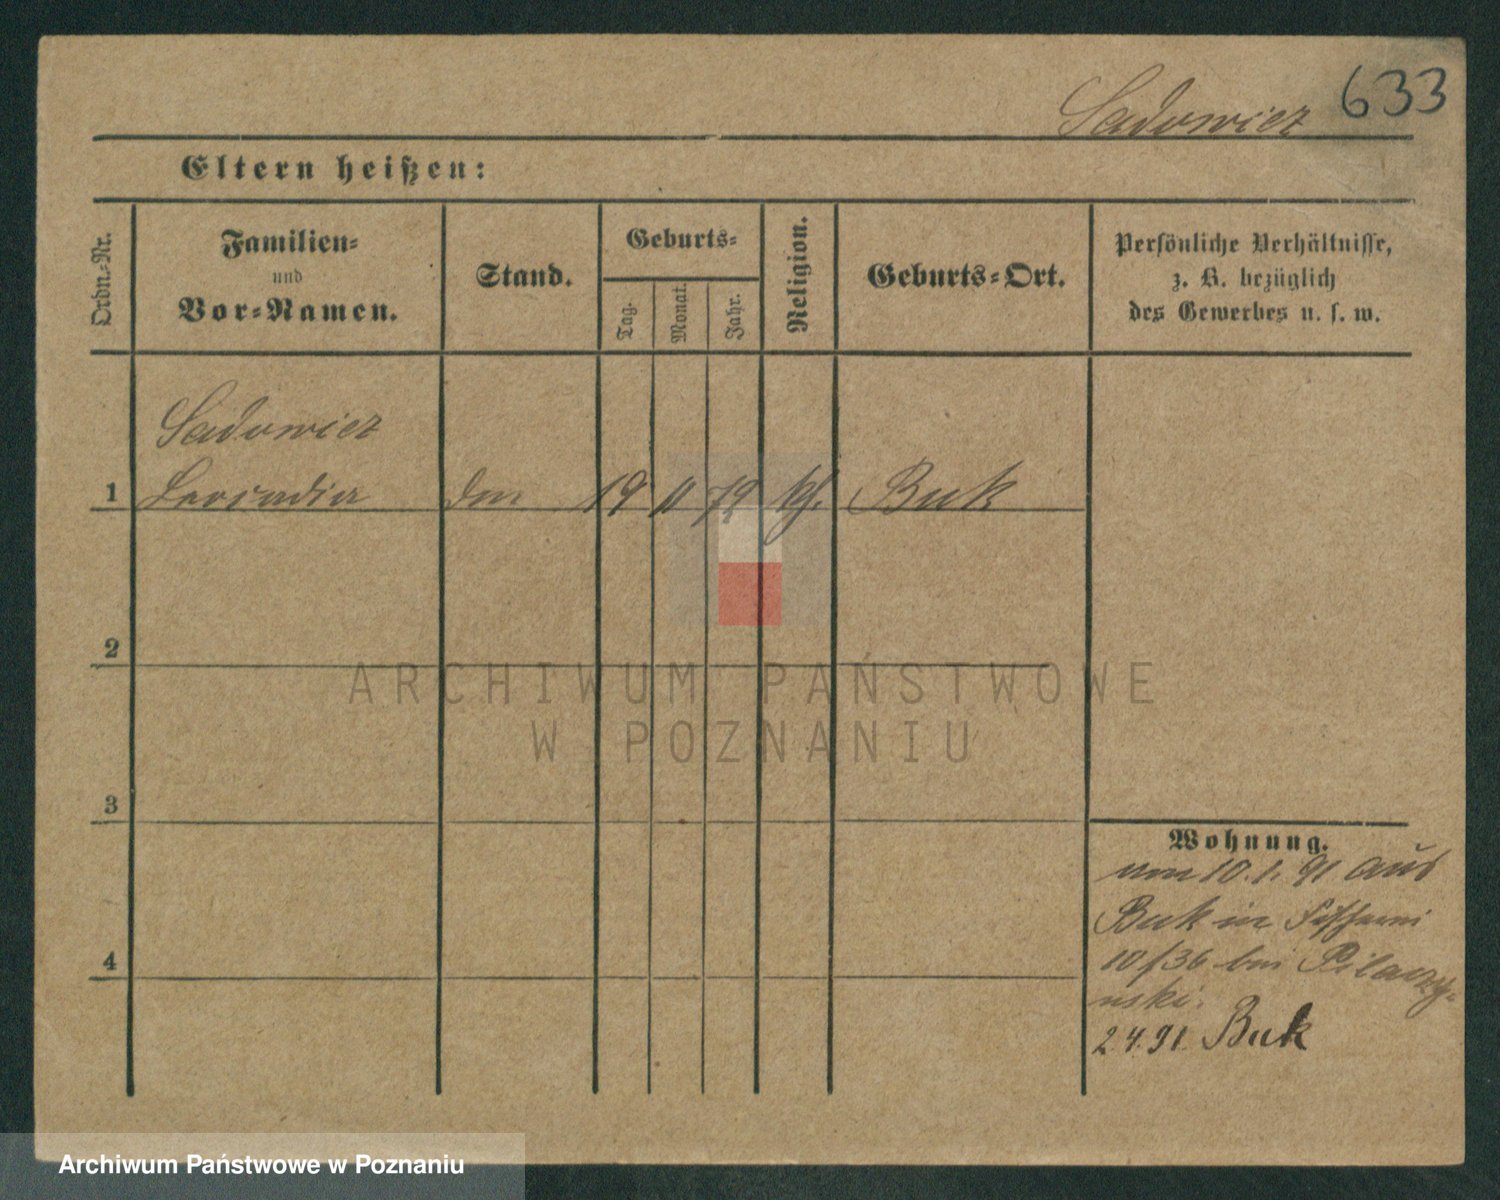 Sadowicz 633
Eltern heißen:
Ordn.-Nr.
Familien-
und
Vor-Namen.
Stand.
Geburts-
Tag.
Monat.
Jahr.
Religion.
Geburts-Ort.
Persönliche Verhältnisse,
z. B. bezüglich
des Gewerbes u. s. w.
Sadowicz
1 Leocadia 19 11 72 kth. Buk
2
ARCHIWUM PAŃSTWOWE
W POZNANIU
3
4
Wohnung.
vom 10.1.91 aus
Buk in Fischerei
10/36 bei Pilaczy-
nski.
2.4.91. Buk
Archiwum Państwowe w Poznaniu